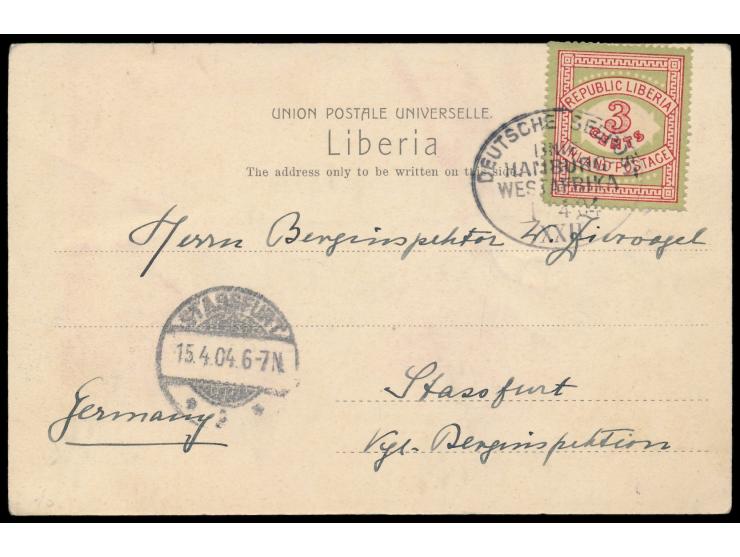 REPUBLIC LIBERIA
3
CENTS
INLAND POSTAGE
UNION POSTALE UNIVERSELLE.
Liberia
The address only to be written on this side.
DEUTSCHE SEEPOST
LINIE
HAMBURG
WESTAFRIKA
4 04
XXII
Herrn Berginspektor Ziervogel
STASSFURT
15.4.04.6-7N.
* 2 *
Stassfurt
Germany
Kgl. Berginspektion